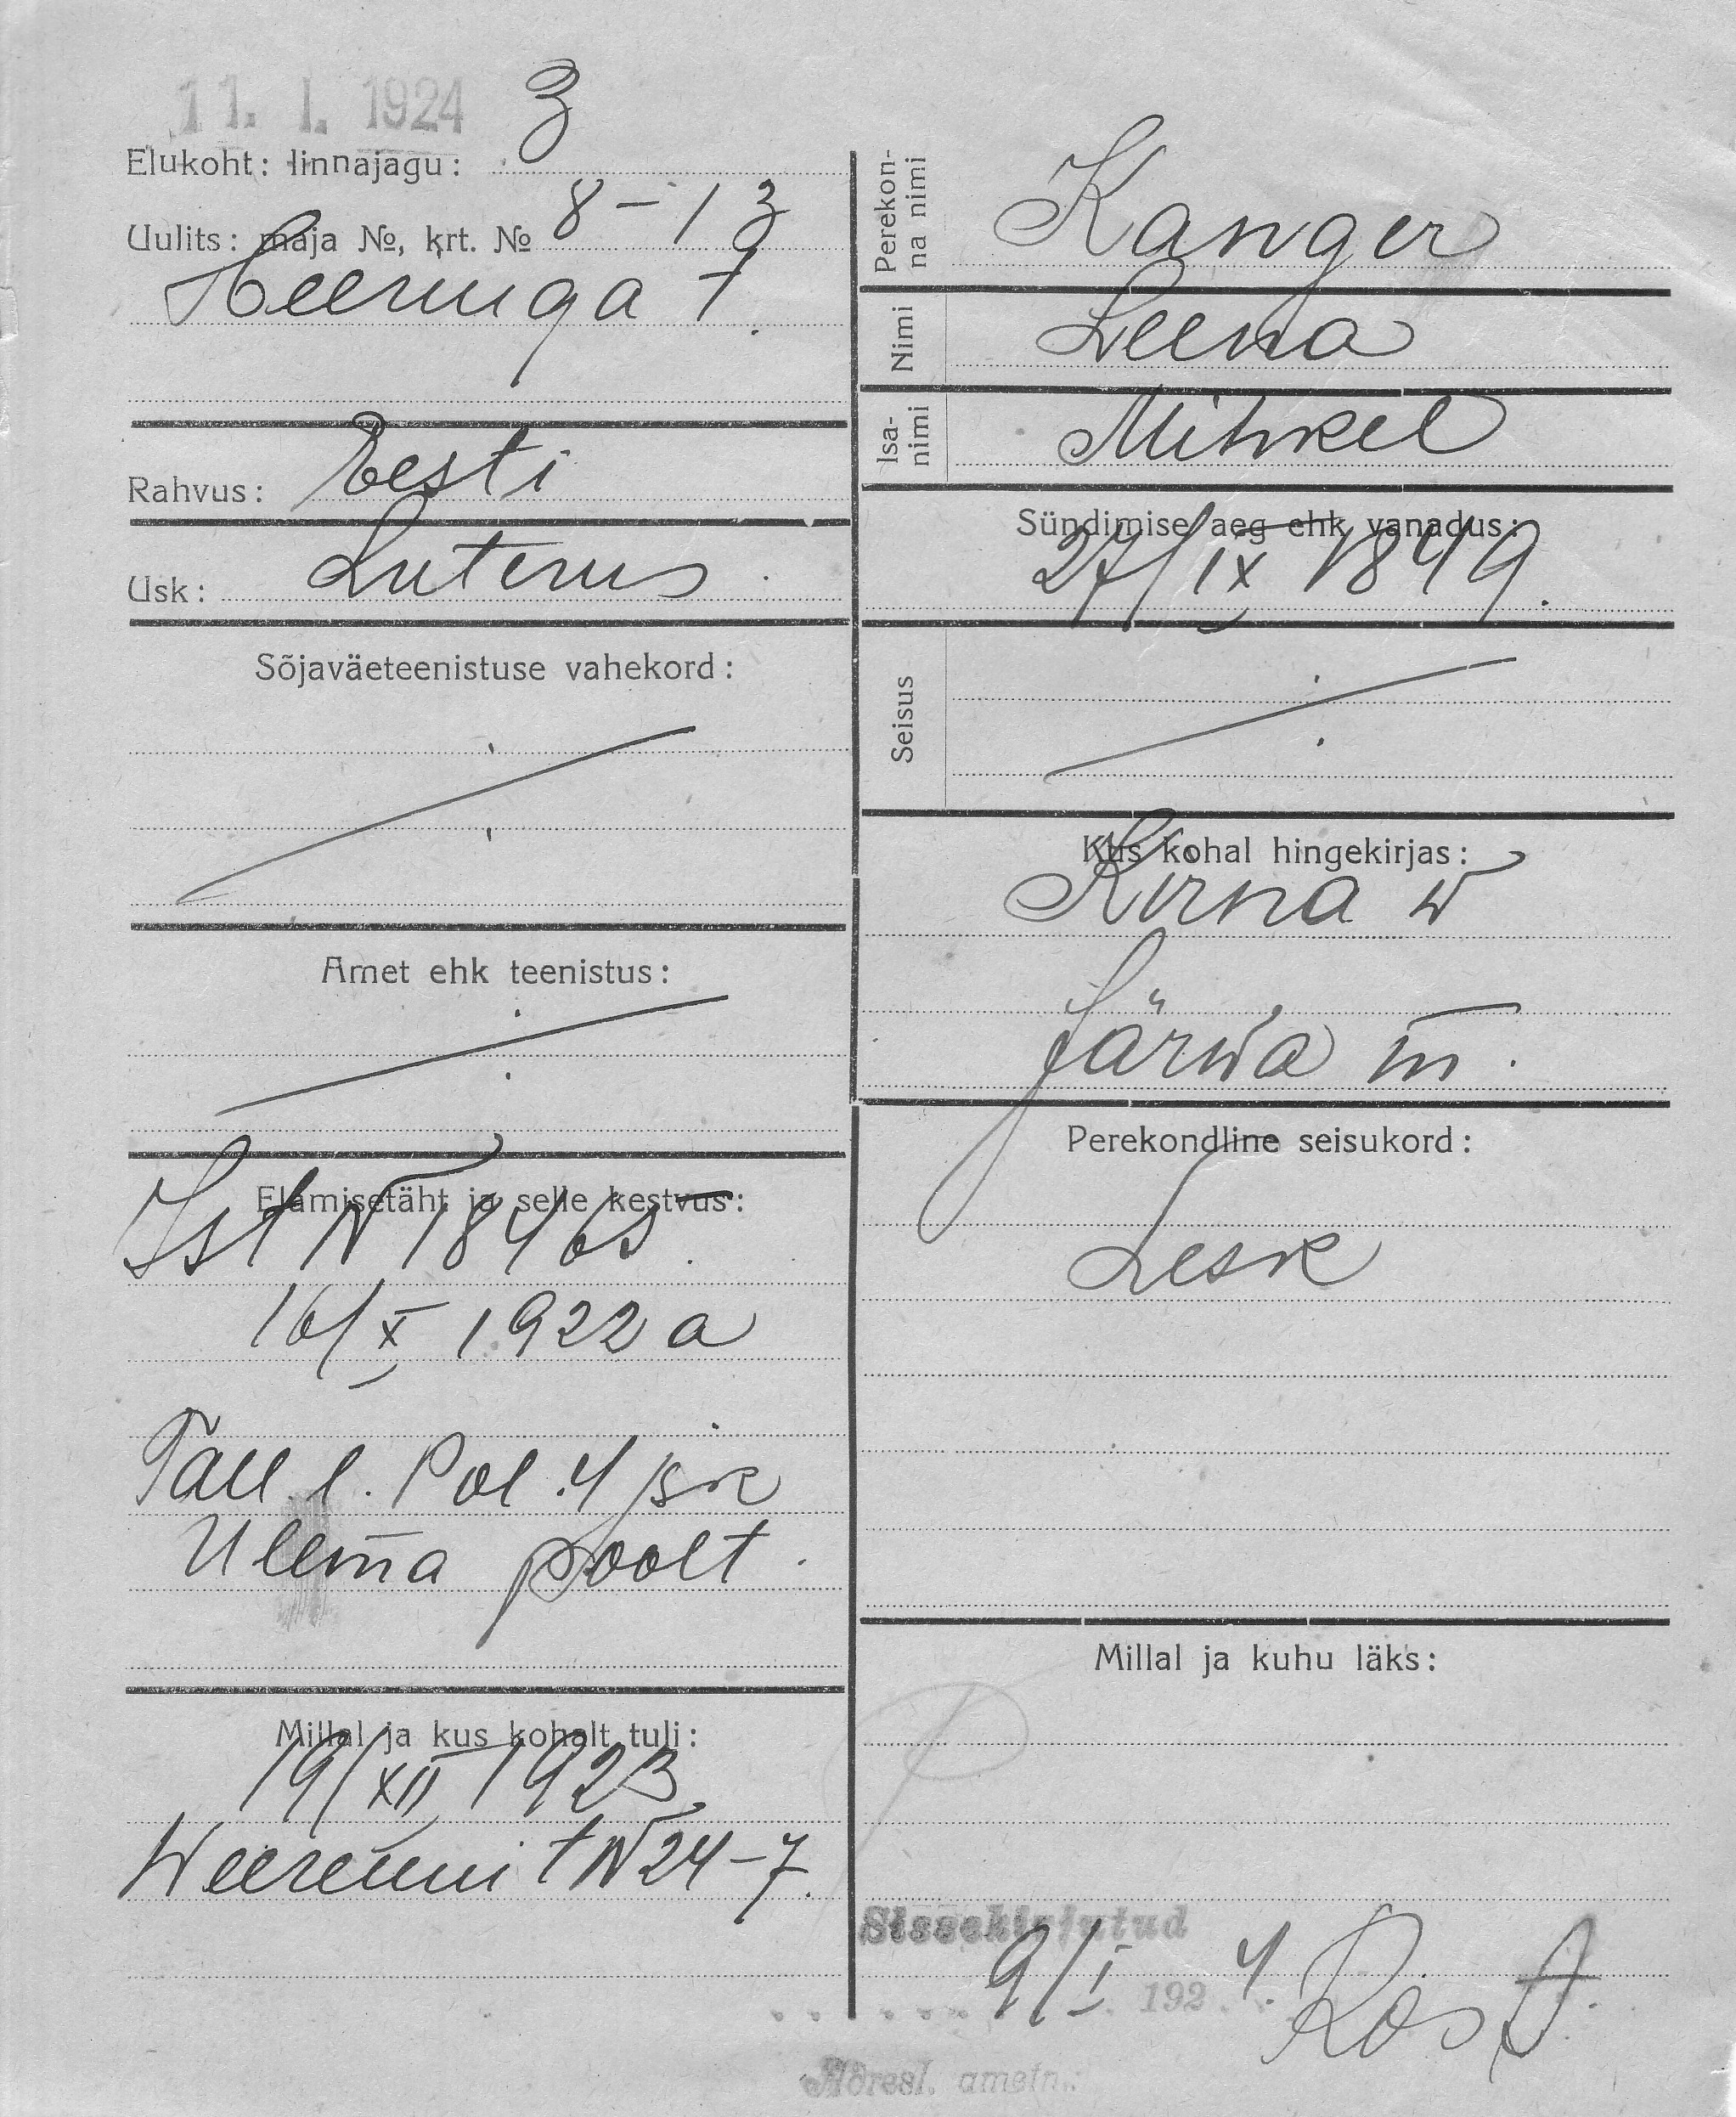 11. I. 1924
3
Elukoht: linnajagu:
8 – 13
Uulits: maja №, krt. №
Heeringa t.
Rahvus: Eesti
Usk: Luterus
Sõjaväeteenistuse vahekord:
Amet ehk teenistus:
Elamisetäht ja selle kestvus:
Ist N 18465.
16/X 1922 a
Tall. l. Pol. 4 jsk
Ulema poolt.
Millal ja kus kohalt tuli:
19/XII 1923.
Weerenni t N 24–7.
Perekonna nimi
Kanger
Nimi
Leena
Isanimi
Mihkel
Sündimise aeg ehk vanadus:
27/IX 1849.
Seisus
Kus kohal hingekirjas:
Kirna w
Järwa m.
Perekondline seisukord:
Lesk
Millal ja kuhu läks:
Sissekirjutud
9/I 1924.
Adresl. ametn.: